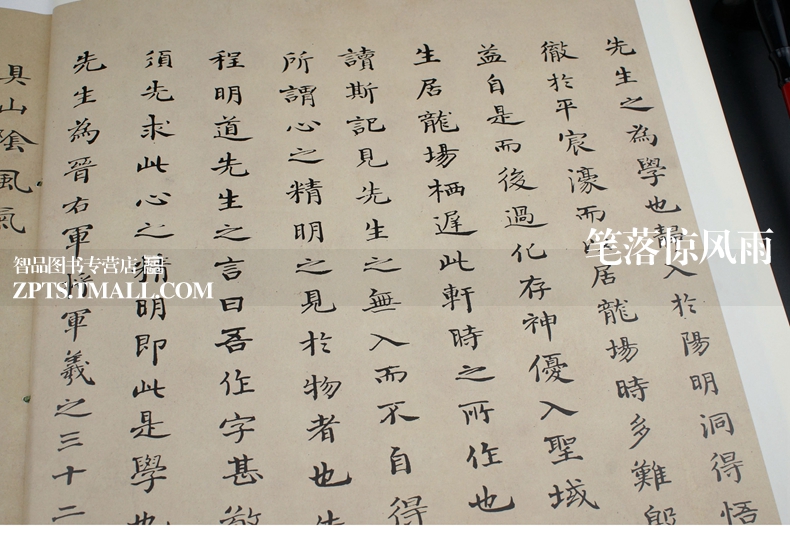 先生之為學也得入於陽明洞得悟
徹於平宸濠而居龍場時多難
益自是而後過化存神優入聖域
生居龍場栖遲此軒時之所作也
讀斯記見先生之無入而不自得
所謂心之精明之見於物者也
程明道先生之言曰吾作字甚敬
須先求此心之精明即此是學也
先生為晉右軍將軍羲之三十二
具山陰風氣
笔落惊风雨
智品图书专营店
ZPTS.TMALL.COM